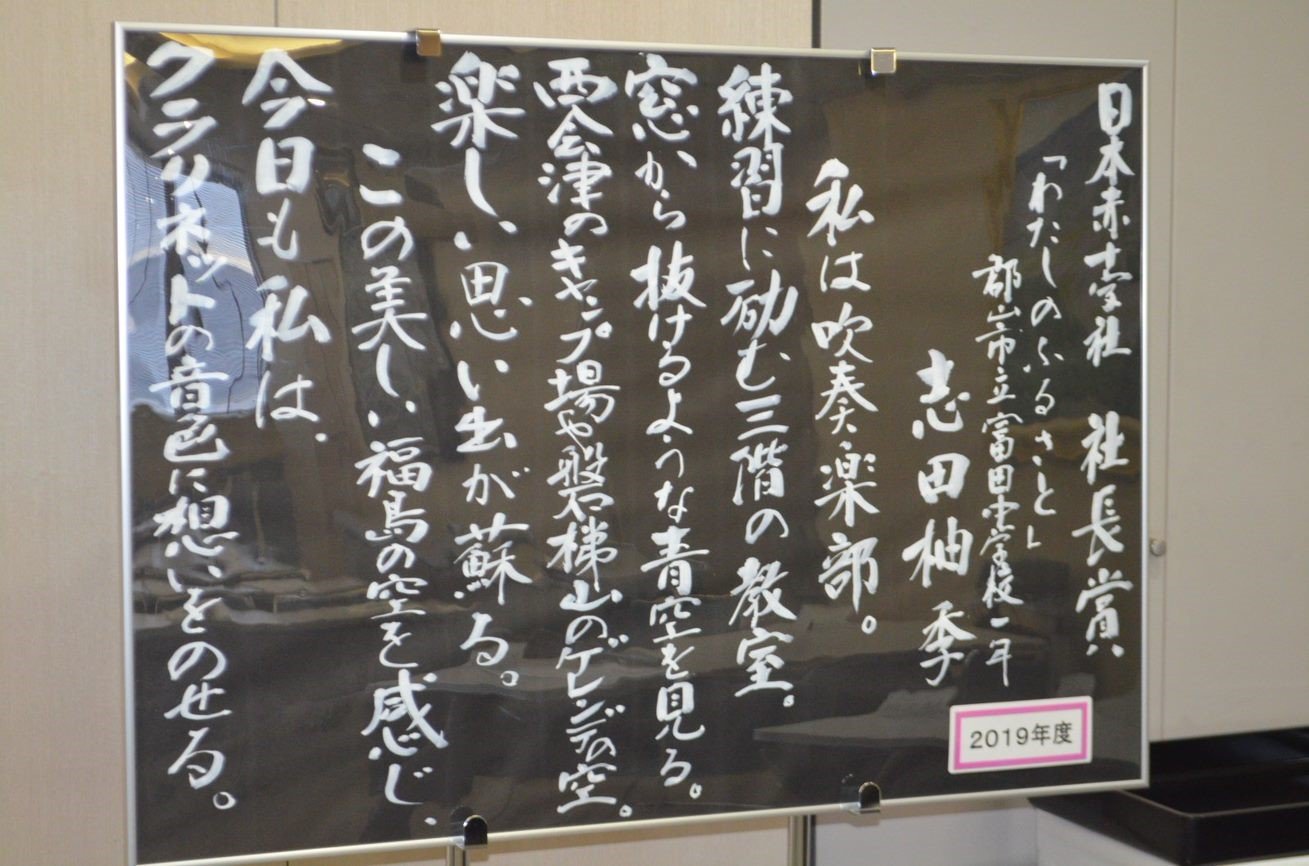 日本赤十字社　社長賞
「わたしのふるさと」
郡山市立富田中学校一年
志田柚季
私は吹奏楽部。
練習に励む三階の教室。
窓から抜けるような青空を見る。
西会津のキャンプ場や磐梯山のゲレンデの空。
楽しい思い出が蘇る。
この美しい福島の空を感じ、
今日も私は、
クラリネットの音色に想いをのせる。
2019年度